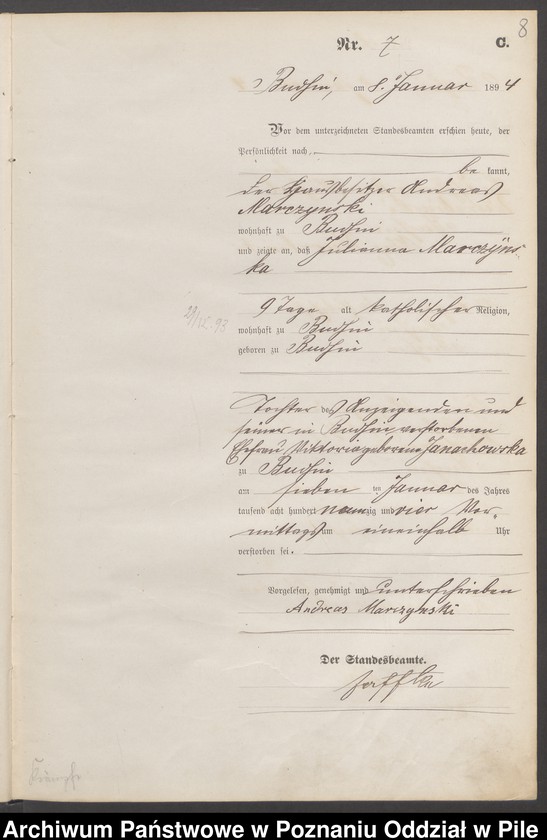 8
Nr. 7 C.
Budsin, am 8. Januar 1894
Vor dem unterzeichneten Standesbeamten erschien heute, der
Persönlichkeit nach,
be kannt,
der Hausbesitzer Andreas
Marczynski
wohnhaft zu Budsin
und zeigte an, daß Julianna Marczÿns-
ka
9 Tage alt katholischer Religion,
29/12. 93
wohnhaft zu Budsin
geboren zu Budsin
Tochter des Anzeigenden und
seiner in Budsin verstorbenen
Ehefrau Viktoria geborene
zu Budsin
am sieben ten Januar des Jahres
tausend acht hundert neunzig und vier Vor-
mittags um eineinhalb Uhr
verstorben sei.
Vorgelesen, genehmigt und unterschrieben
Andreas Marczynski
Der Standesbeamte.
Krämpfe
Archiwum Państwowe w Poznaniu Oddział w Pile